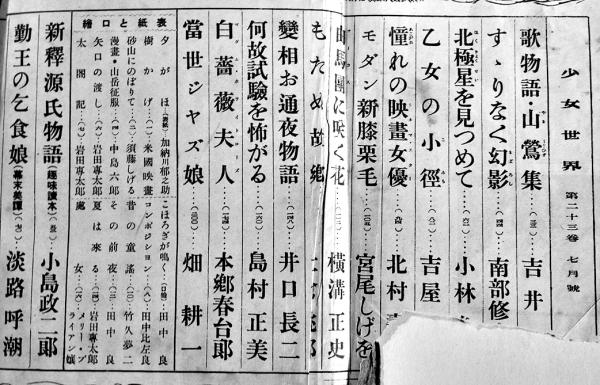 少女世界 第二十三巻 七月號
歌物語・山鶯集 吉井
すゝりなく幻影 南部修
北極星を見つめて 小林
乙女の小徑 吉屋
憧れの映畫女優 北村
モダン新膝栗毛 宮尾しげを
曲馬團に咲く花 横溝正史
變相お通夜物語 井口長二
何故試驗を怖がる 島村正美
白薔薇夫人 本鄕春台郎
當世ジャズ娘 畑耕一
表紙と口繪
夕がほ(表紙) 加納川郁之助
樹かげ(一) 米國映畫
砂山にのぼりて 須藤しげる
漫畫・山岳征服 中島六郎
矢口の渡し 岩田專太郎
太閤記 岩田專太郎
こほろぎが鳴く(口繪) 田中良
コンポジション 田中比左良
昔の童謠 竹久夢二
その前夜 田中良
夏は來る 岩田專太郎
處女 メリー・ブライアン孃
新釋源氏物語(趣味讀本) 小島政二郎
勤王の乞食娘(幕末美譚) 淡路呼潮